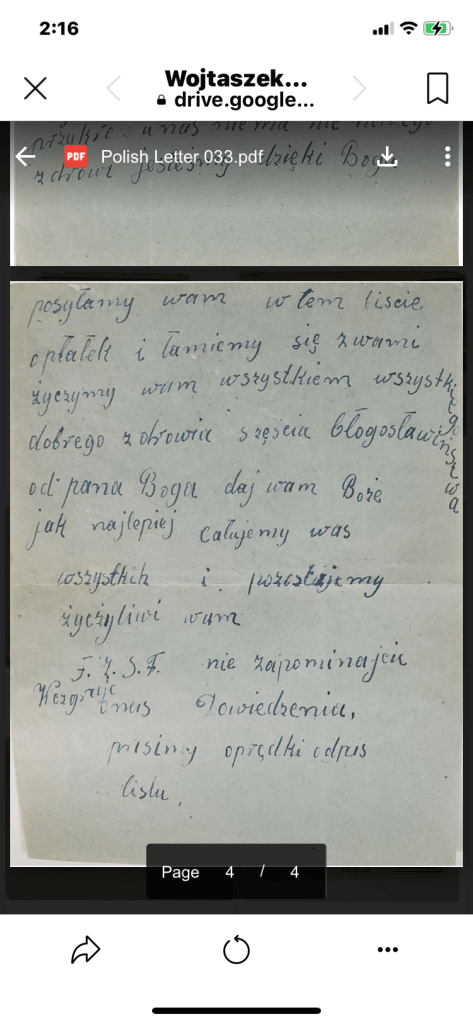 2:16
Wojtaszek...
drive.google...
przykro u nas niema nic nowego
PDF Polish Letter 033.pdf
zdrowi jesteśmy dzięki Bogu
posyłamy wam w tem liscie
opłatek i łamiemy się zwami
życzymy wam wszystkiem wszystkiego
dobrego zdrowia szęścia błogosławinstwa
od pana Boga daj wam Boże
jak najlepiej całujemy was
wszystkih i pozostajemy
życzyliwi wam
F. Z. S. F. nie zapominajcie
onas Dowiedzenia,
prosimy oprędki odpis
listu,
Page 4 / 4